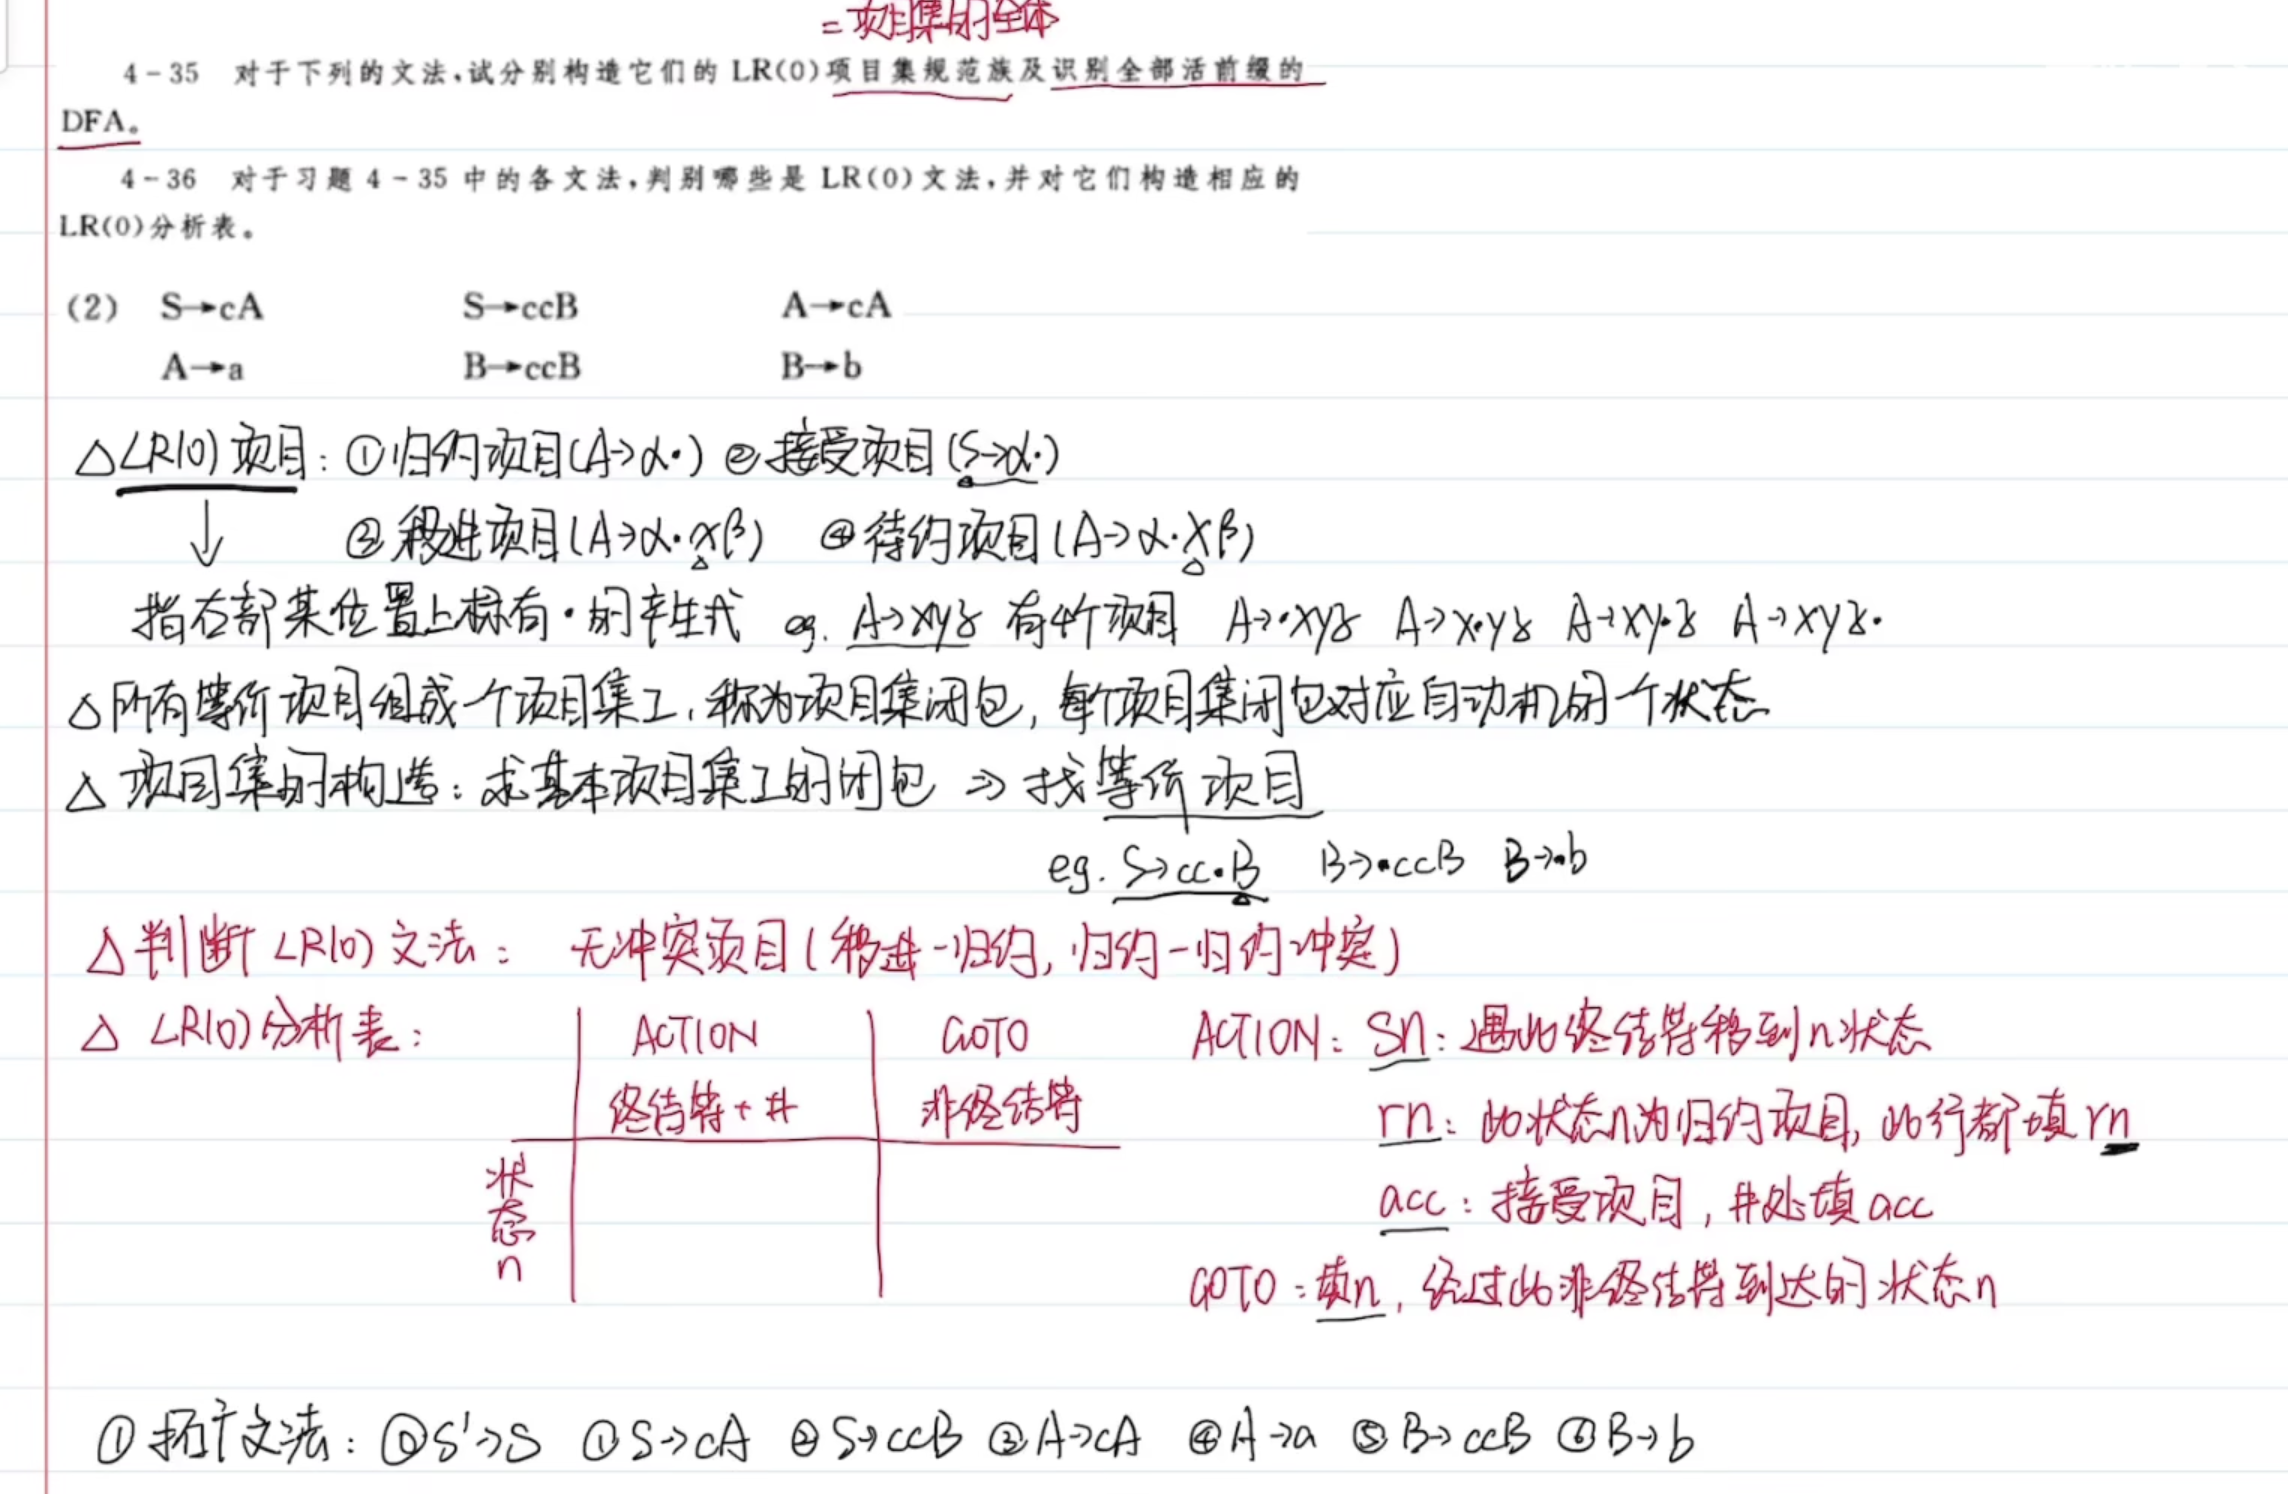 =项目集的全体
4-35 对于下列的文法,试分别构造它们的 LR(0)项目集规范族及识别全部活前缀的
DFA。
4-36 对于习题 4-35 中的各文法,判别哪些是 LR(0)文法,并对它们构造相应的
LR(0)分析表。
(2) S→cA S→ccB A→cA
A→a B→ccB B→b
△LR(0)项目:①归约项目(A→α·) ②接受项目(S→α·)
③移进项目(A→α·xβ) ④待约项目(A→α·Xβ)
↓
指右部某位置上标有·的产生式 eg. A→xyz 有4个项目 A→·xyz A→x·yz A→xy·z A→xyz·
△所有等价项目组成一个项目集I,称为项目集闭包,每个项目集闭包对应自动机的一个状态
△项目集的构造:求基本项目集I的闭包 ⇒ 找等价项目
eg. S→cc·B B→·ccB B→·b
△判断LR(0)文法: 无冲突项目(移进-归约,归约-归约冲突)
△ LR(0)分析表: ACTION GOTO ACTION: Sn: 遇此终结符移到n状态
终结符+# 非终结符 rn: 此状态n为归约项目,此行都填rn
状态n acc: 接受项目,#处填acc
GOTO:填n,经过此非终结符到达的状态n
①拓广文法: ⓪S'→S ①S→cA ②S→ccB ③A→cA ④A→a ⑤B→ccB ⑥B→b